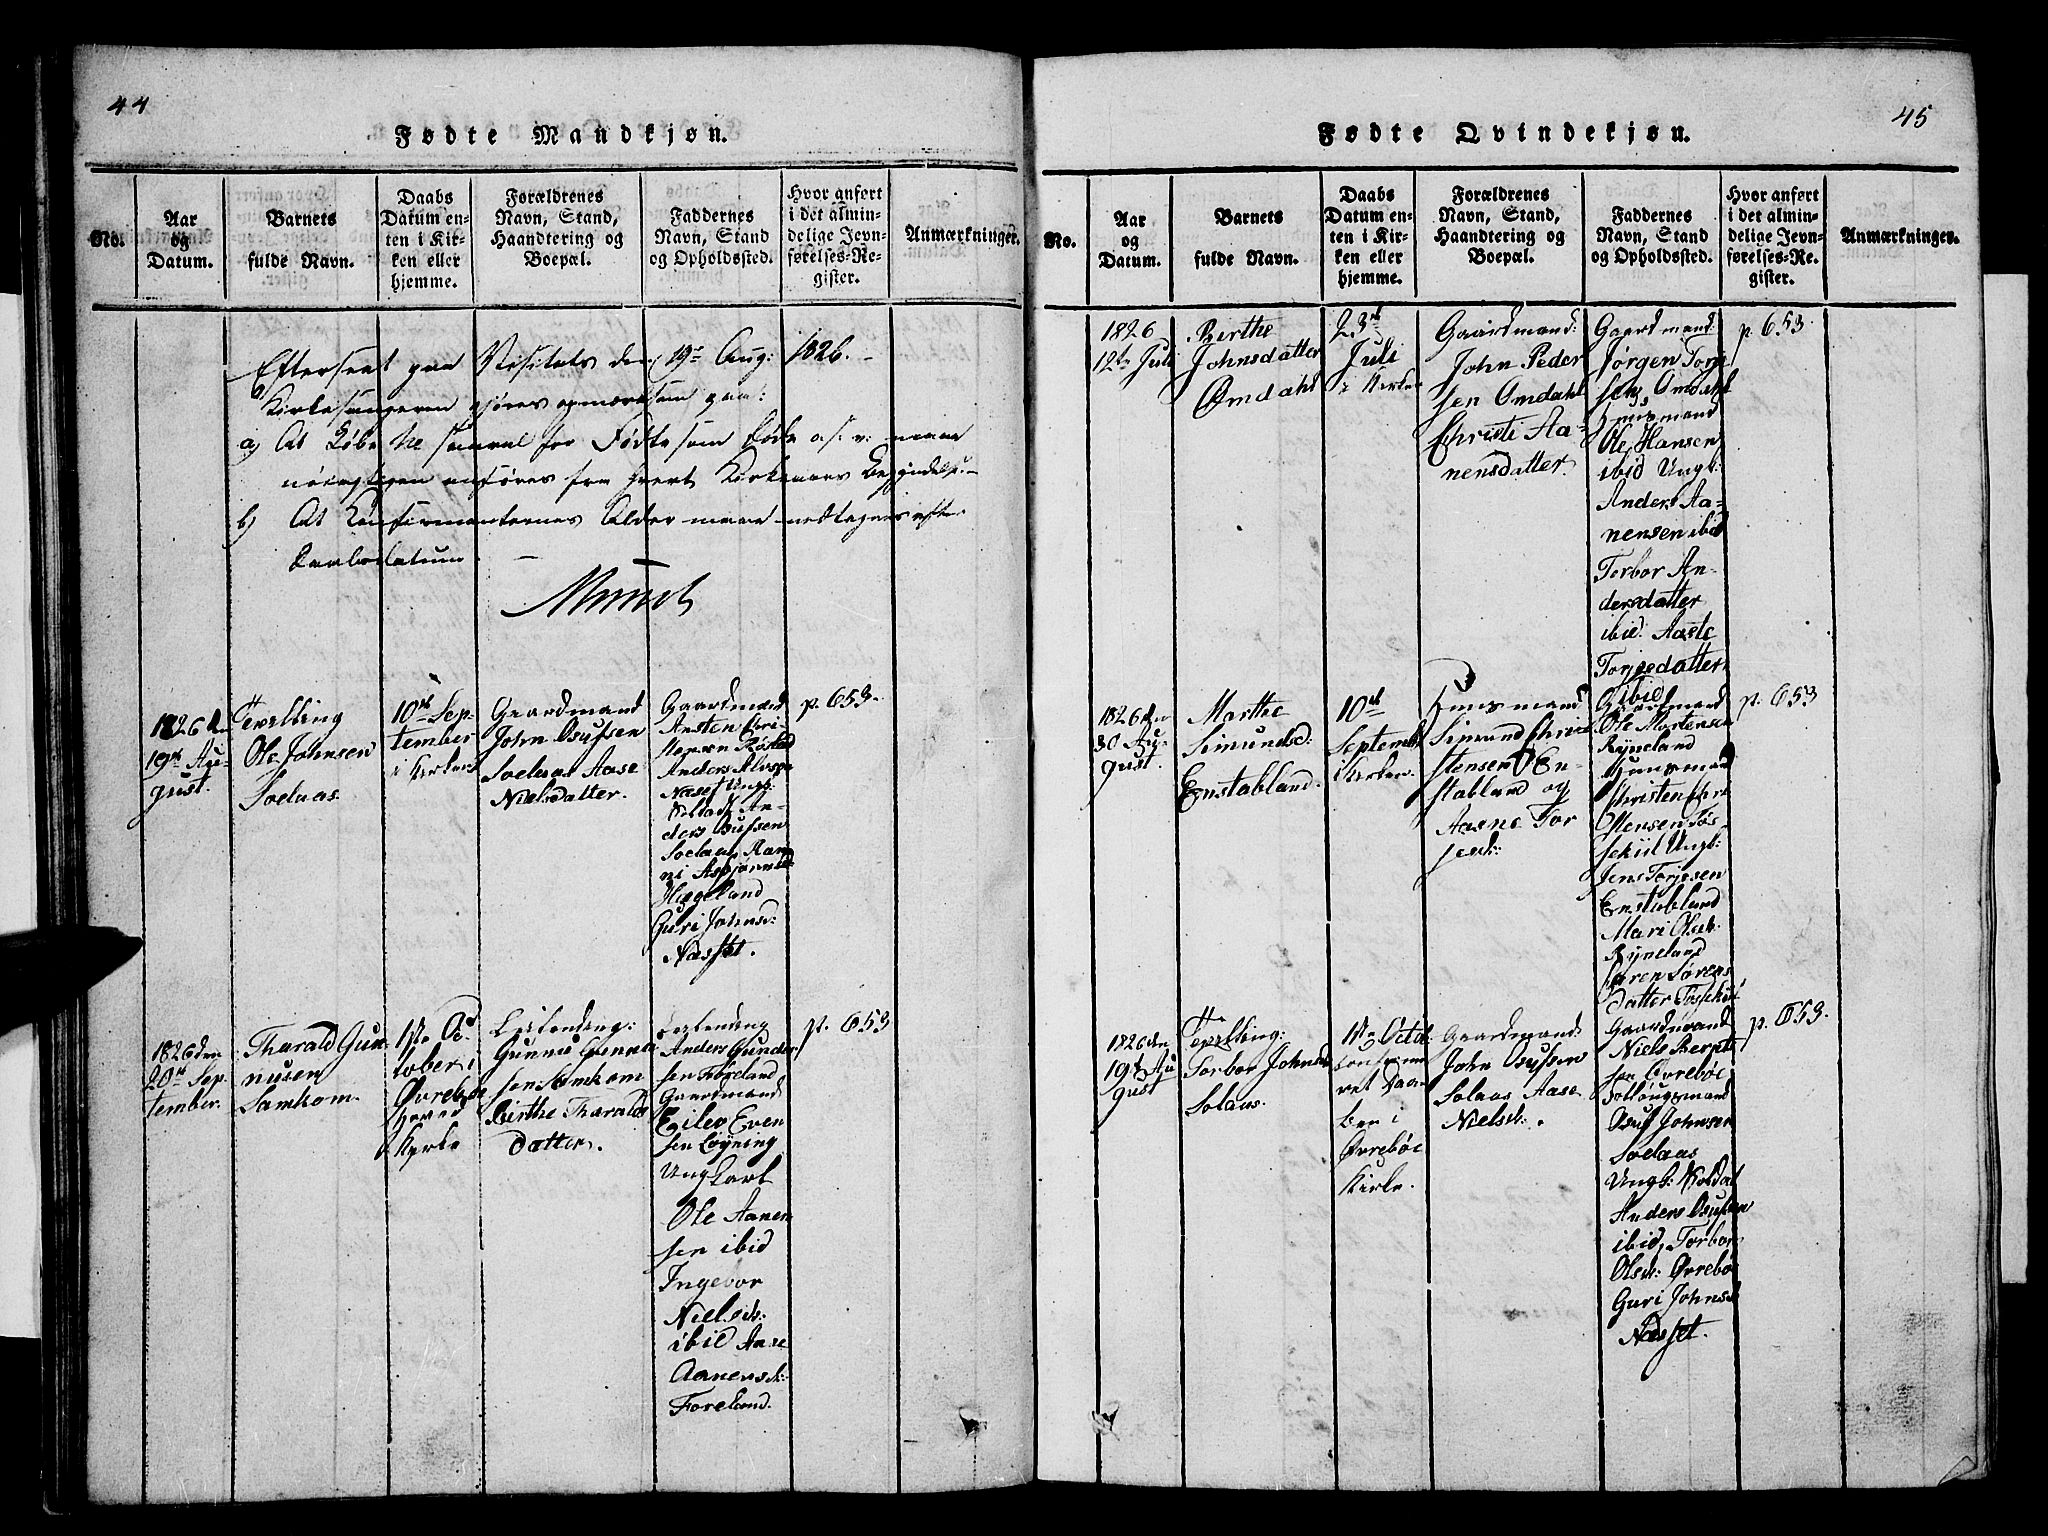 44
Fødte Mandkjøn.
No.
Aar
og
Datum.
Barnets
fulde Navn.
Daabs
Datum en-
ten i Kir-
ken eller
hjemme.
Forældrenes
Navn, Stand,
Haandtering og
Boepæl.
Faddernes
Navn, Stand
og Opholdssted.
Hvor anført
i det almin-
delige Jevn-
førelses-Re-
gister.
Anmærkninger.
Efterseet paa Visitats den 19de Aug: 1826. -
Kirkesangeren gjøres opmærksom paa:
a) At for Fødte som Døde o. s. v. maae
anføres fra hvert Kirkeaars Begyndelse. -
b) At Confirmanternes Alder maae efter
Daabsdatum. -
Munch
1826 d
19de Au-
gust.
Tvilling
Ole Johnsen
Soelaas.
10de Sep-
tember
i Kirken
Gaardmand
John Osufsen
Soelaas Aase
Nielsdatter.
Gaardmand
Ansten
Anders
Naaset Ungk:
Soldat An-
ders Osufsen
Soelaas
ni
Heggeland
Guri Johnsd:
Naaset.
p. 653.
1826 den
20de Sep-
tember.
Tharald Gun-
nusen
Samkom.
1ste Oc-
tober i
Øvrebøe
Hoved
Kirke
Gunnu Gunnu
sen Samkom
Birthe Tharalds
datter.
Anders Gunder
sen Foreland
Gaardmand
Eilev Even
sen Løyning
Ungkarl
Ole Aanen
sen ibid
Ingebor
Nielsdt:
ibid Aase
Aanensdt:
Foreland.
p. 653
45
Fødte Qvindekjøn.
No.
Aar
og
Datum.
Barnets
fulde Navn.
Daabs
Datum en-
ten i Kir-
ken eller
hjemme.
Forældrenes
Navn, Stand,
Haandtering og
Boepæl.
Faddernes
Navn, Stand
og Opholdssted.
Hvor anført
i det almin-
delige Jevn-
førelses-Re-
gister.
Anmærkninger.
1826
12te Juli
Berthe
Johnsdatter
Omdahl
23de
Juli
i Kirken
Gaardmand:
John Peder
sen Omdahl
Christi Aa-
nensdatter.
Gaardmand
Jørgen Torje
sen Omdahl
Huusmand
Ole Hansen
ibid Ungk:
Anders Aa-
nensen ibid
Torbor An-
dersdatter
ibid. Aaste
Torjesdatter
ibid
p. 653
1826 den
30 Au-
gust.
Marthe
Simunsd:
Enstabland.
10de
September
i Kirken.
Huusmand
Simund Chri
stensen En-
stabland og
Aasne Tor
jesdt:
Gaardmand
Ole Mortensen
Ryneland
Huusmand
Christen Chri
stensen
Ungk:
Jens Torjesen
Enstabland
Mari Olsdt:
Ryneland
Karen Sørens
datter
p. 653
1826 den
19de Au
gust
Tvilling:
Torbor Johnsd
Solaas.
1ste Octob:
ret Daa-
ben i
Øvrebøe
Kirke.
Gaardmand
John Osufsen
Solaas Aase
Nielsdt:.
Gaardmand
Niels Bernt
sen Øvrebøe
Osuf Johnsen
Soelaas
Ungk: Soldat
Anders Osufsen
ibid, Torbor
Olsdt: Øvrebøe
Guri Johnsd
Naaset.
p. 653.